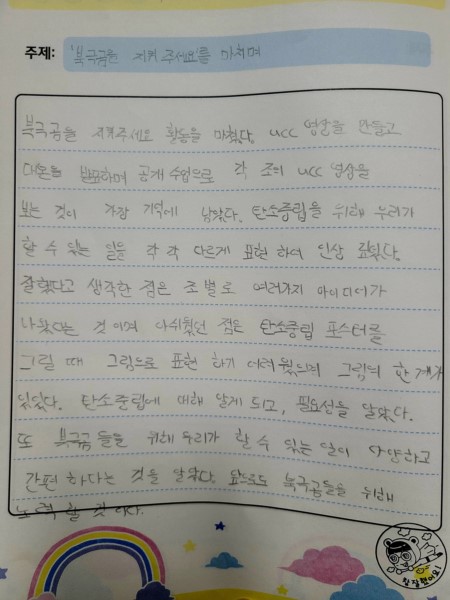 주제: '북극곰을 지켜 주세요'를 마치며
북극곰을 지켜주세요 활동을 마쳤다. ucc 영상을 만들고
대본을 발표하며 공개 수업으로 각 조의 ucc 영상을
보는 것이 가장 기억에 남았다. 탄소중립을 위해 우리가
할 수 있는 일들을 각 각 다르게 표현 하여 인상 깊었다.
잘했다고 생각한 점은 조별로 여러가지 아이디어가
나왔다는 것이며 아쉬웠던 점은 탄소중립 포스터를
그릴 때 그림으로 표현 하기 어려웠으며 그림의 한계가
있었다. 탄소중립에 대해 알게 되고, 필요성을 알았다.
또 북극곰들을 위해 우리가 할 수 있는 일이 다양하고
간편 하다는 것을 알았다. 앞으로도 북극곰들을 위해
노력 할 것이다.
참 잘했어요!